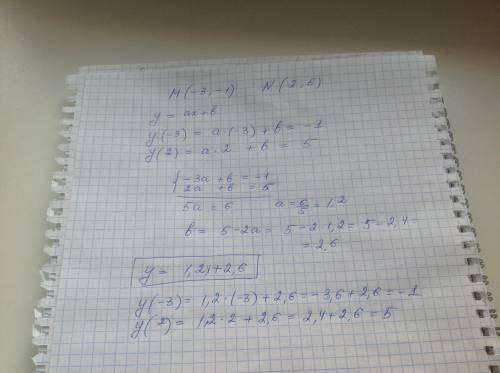 M(-3,-1) N(2,5)
y = ax+b
y(-3) = a·(-3)+b = -1
y(2) = a·2 +b = 5
{-3a+b = -1
2a +b = 5
5a = 6 a = 6/5 = 1,2
b = 5-2a = 5-2·1,2 = 5-2,4 =
= 2,6
y = 1,2x+2,6
y(-3) = 1,2·(-3)+2,6 = -3,6+2,6 = -1
y(2) = 1,2·2+2,6 = 2,4+2,6 = 5